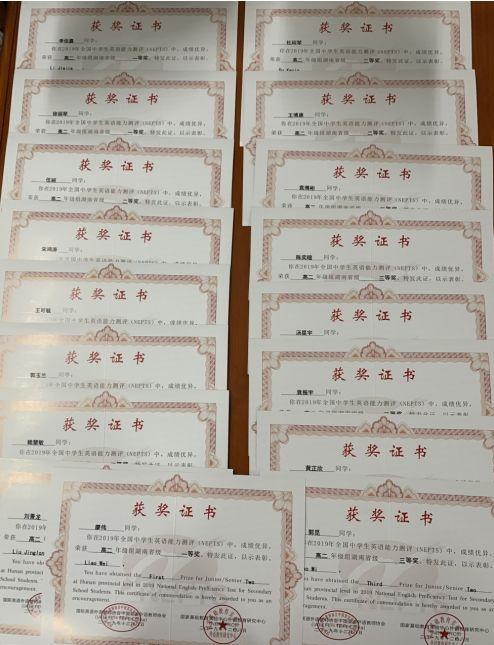 获奖证书
李佳鑫 同学:
你在2019年全国中学生英语能力测评(NEPTS)中,成绩优异,
荣获 高二 年级组湖南省级 一等奖,特发此证,以示表彰。
获奖证书
同学:
你在2019年全国中学生英语能力测评(NEPTS)中,成绩优异,
荣获 高二 年级组湖南省级 二等奖,特发此证,以示表彰。
获奖证书
任丽 同学:
你在2019年全国中学生英语能力测评(NEPTS)中,成绩优异,
荣获 高二 年级组湖南省级 二等奖,特发此证,以示表彰。
获奖证书
宋鸿涛 同学:
你在2019年全国中学生英语能力测评(NEPTS)中,成绩优异,
获奖证书
王可敏 同学:
你在2019年全国中学生英语能力测评(NEPTS)中,成绩优异,
获奖证书
郭玉兰 同学:
你在2019年全国中学生英语能力测评(NEPTS)中,成绩优异,
获奖证书
赖慧敏 同学:
你在2019年全国中学生英语能力测评(NEPTS)中,成绩优异,
刘景龙
你在2019
荣获 高二
Liu Jinglon
You have
at Hunan
School Stud
encouragement
获奖证书
廖伟 同学:
你在2019年全国中学生英语能力测评(NEPTS)中,成绩优异,
荣获 高二 年级组湖南省级 一等奖,特发此证,以示表彰。
Liao Wei,
You have obtained the First Prize for Junior/Senior Two
at Hunan provincial level in 2019 National English Proficiency Test for Secondary
School Students. This certificate of commendation is hereby awarded to you as an
encouragement.
获奖证书
同学:
你在2019年全国中学生英语能力测评(NEPTS)中,成绩优异,
荣获 高二 年级组湖南省级 二等奖,特发此证,以示表彰。
获奖证书
王博康 同学:
你在2019年全国中学生英语能力测评(NEPTS)中,成绩优异,
荣获 高二 年级组湖南省级 二等奖,特发此证,以示表彰。
获奖证书
袁博彬 同学:
你在2019年全国中学生英语能力测评(NEPTS)中,成绩优异,
荣获 高二 年级组湖南省级 三等奖,特发此证,以示表彰。
获奖证书
陈奕瞳 同学:
你在2019年全国中学生英语能力测评(NEPTS)中,成绩优异,
荣获 高二 年级组湖南省级 三等奖,特发此证,以示表彰。
获奖证书
汤星宇 同学:
你在2019年全国中学生英语能力测评(NEPTS)中,成绩优异,
获奖证书
袁振宇 同学:
你在2019年全国中学生英语能力测评(NEPTS)中,成绩优异,
荣获 高二 年级组湖南省级 三等奖,特发此证,以示表彰。
获奖证书
黄正欣 同学:
你在2019年全国中学生英语能力测评(NEPTS)中,成绩优异,
获奖证书
同学:
你在2019年全国中学生英语能力测评(NEPTS)中,成绩优异,
荣获 高二 年级组湖南省级 三等奖,特发此证,以示表彰。
You have obtained the Third Prize for Junior/Senior Two
at Hunan provincial level in 2019 National English Proficiency Test for Secondary
School Students. This certificate of commendation is hereby awarded to you as an
encouragement.